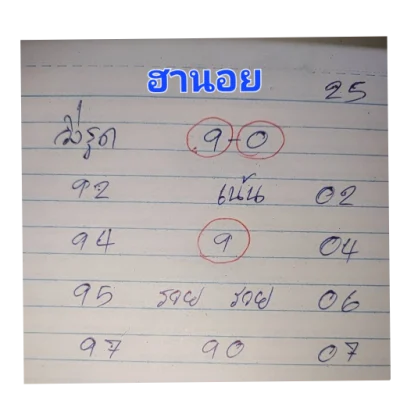 ฮานอย 25
มิ่รูด 9-0
92 เน้น 02
94 9 04
95 รวย รวย 06
97 90 07